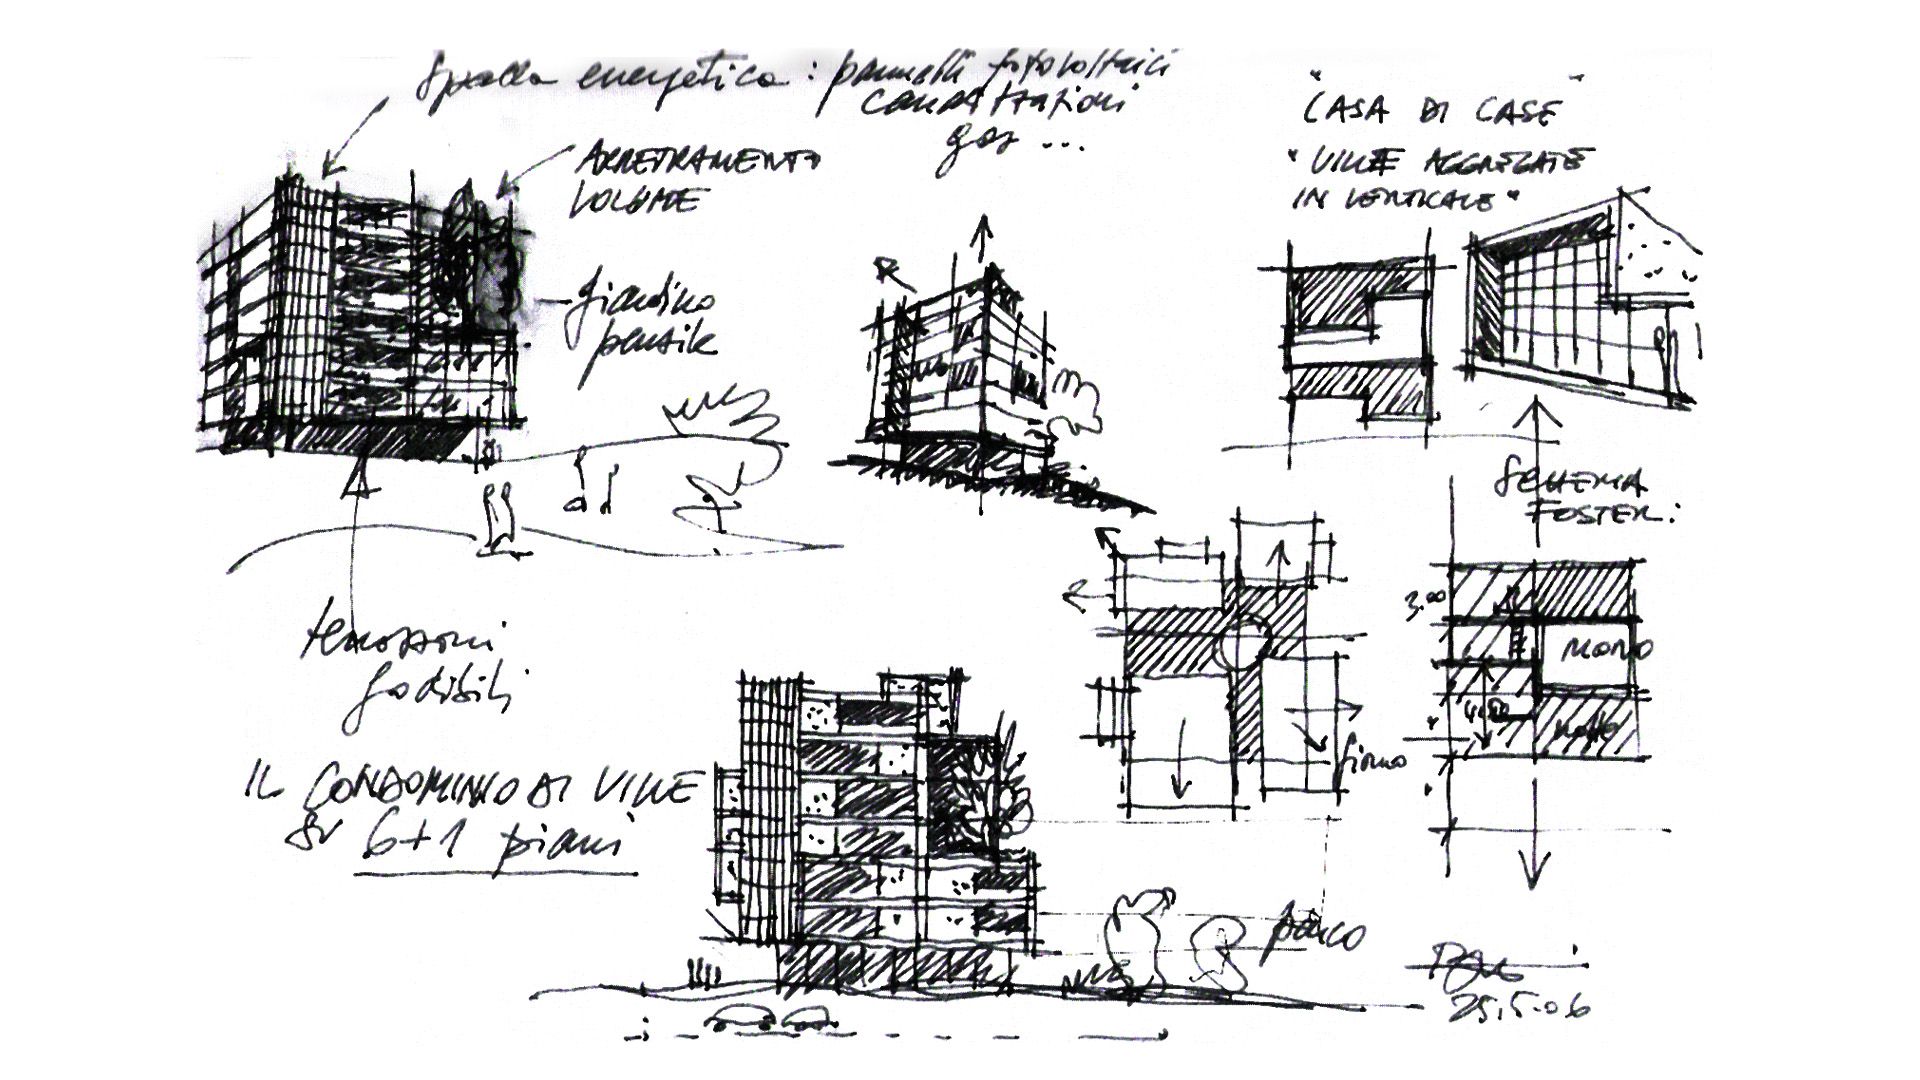 Spalla energetica: pannelli fotovoltaici
canalizzazioni
gas ...
ARRETRAMENTO
VOLUME
giardino
pensile
R
"CASA DI CASE"
"VILLE AGGREGATE
IN VERTICALE"
SCHEMA
FOSTER:
3.00
MONO
4.00
giorno
godibili
IL CONDOMINIO DI VILLE
SU 6+1 piani
parco
25.5.06